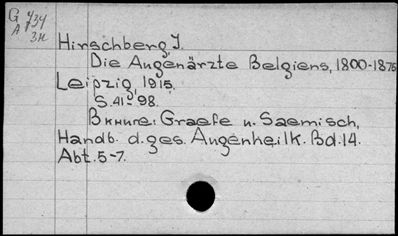 G 734
A 3н
Hirschberg, J.
Die Augenärzte Belgiens, 1800-1875
Leipzig, 1915.
S. 41-98.
В книге: Graefe u. Saemisch,
Handb. d. ges. Augenheilk. Bd. 14.
Abt. 5-7.